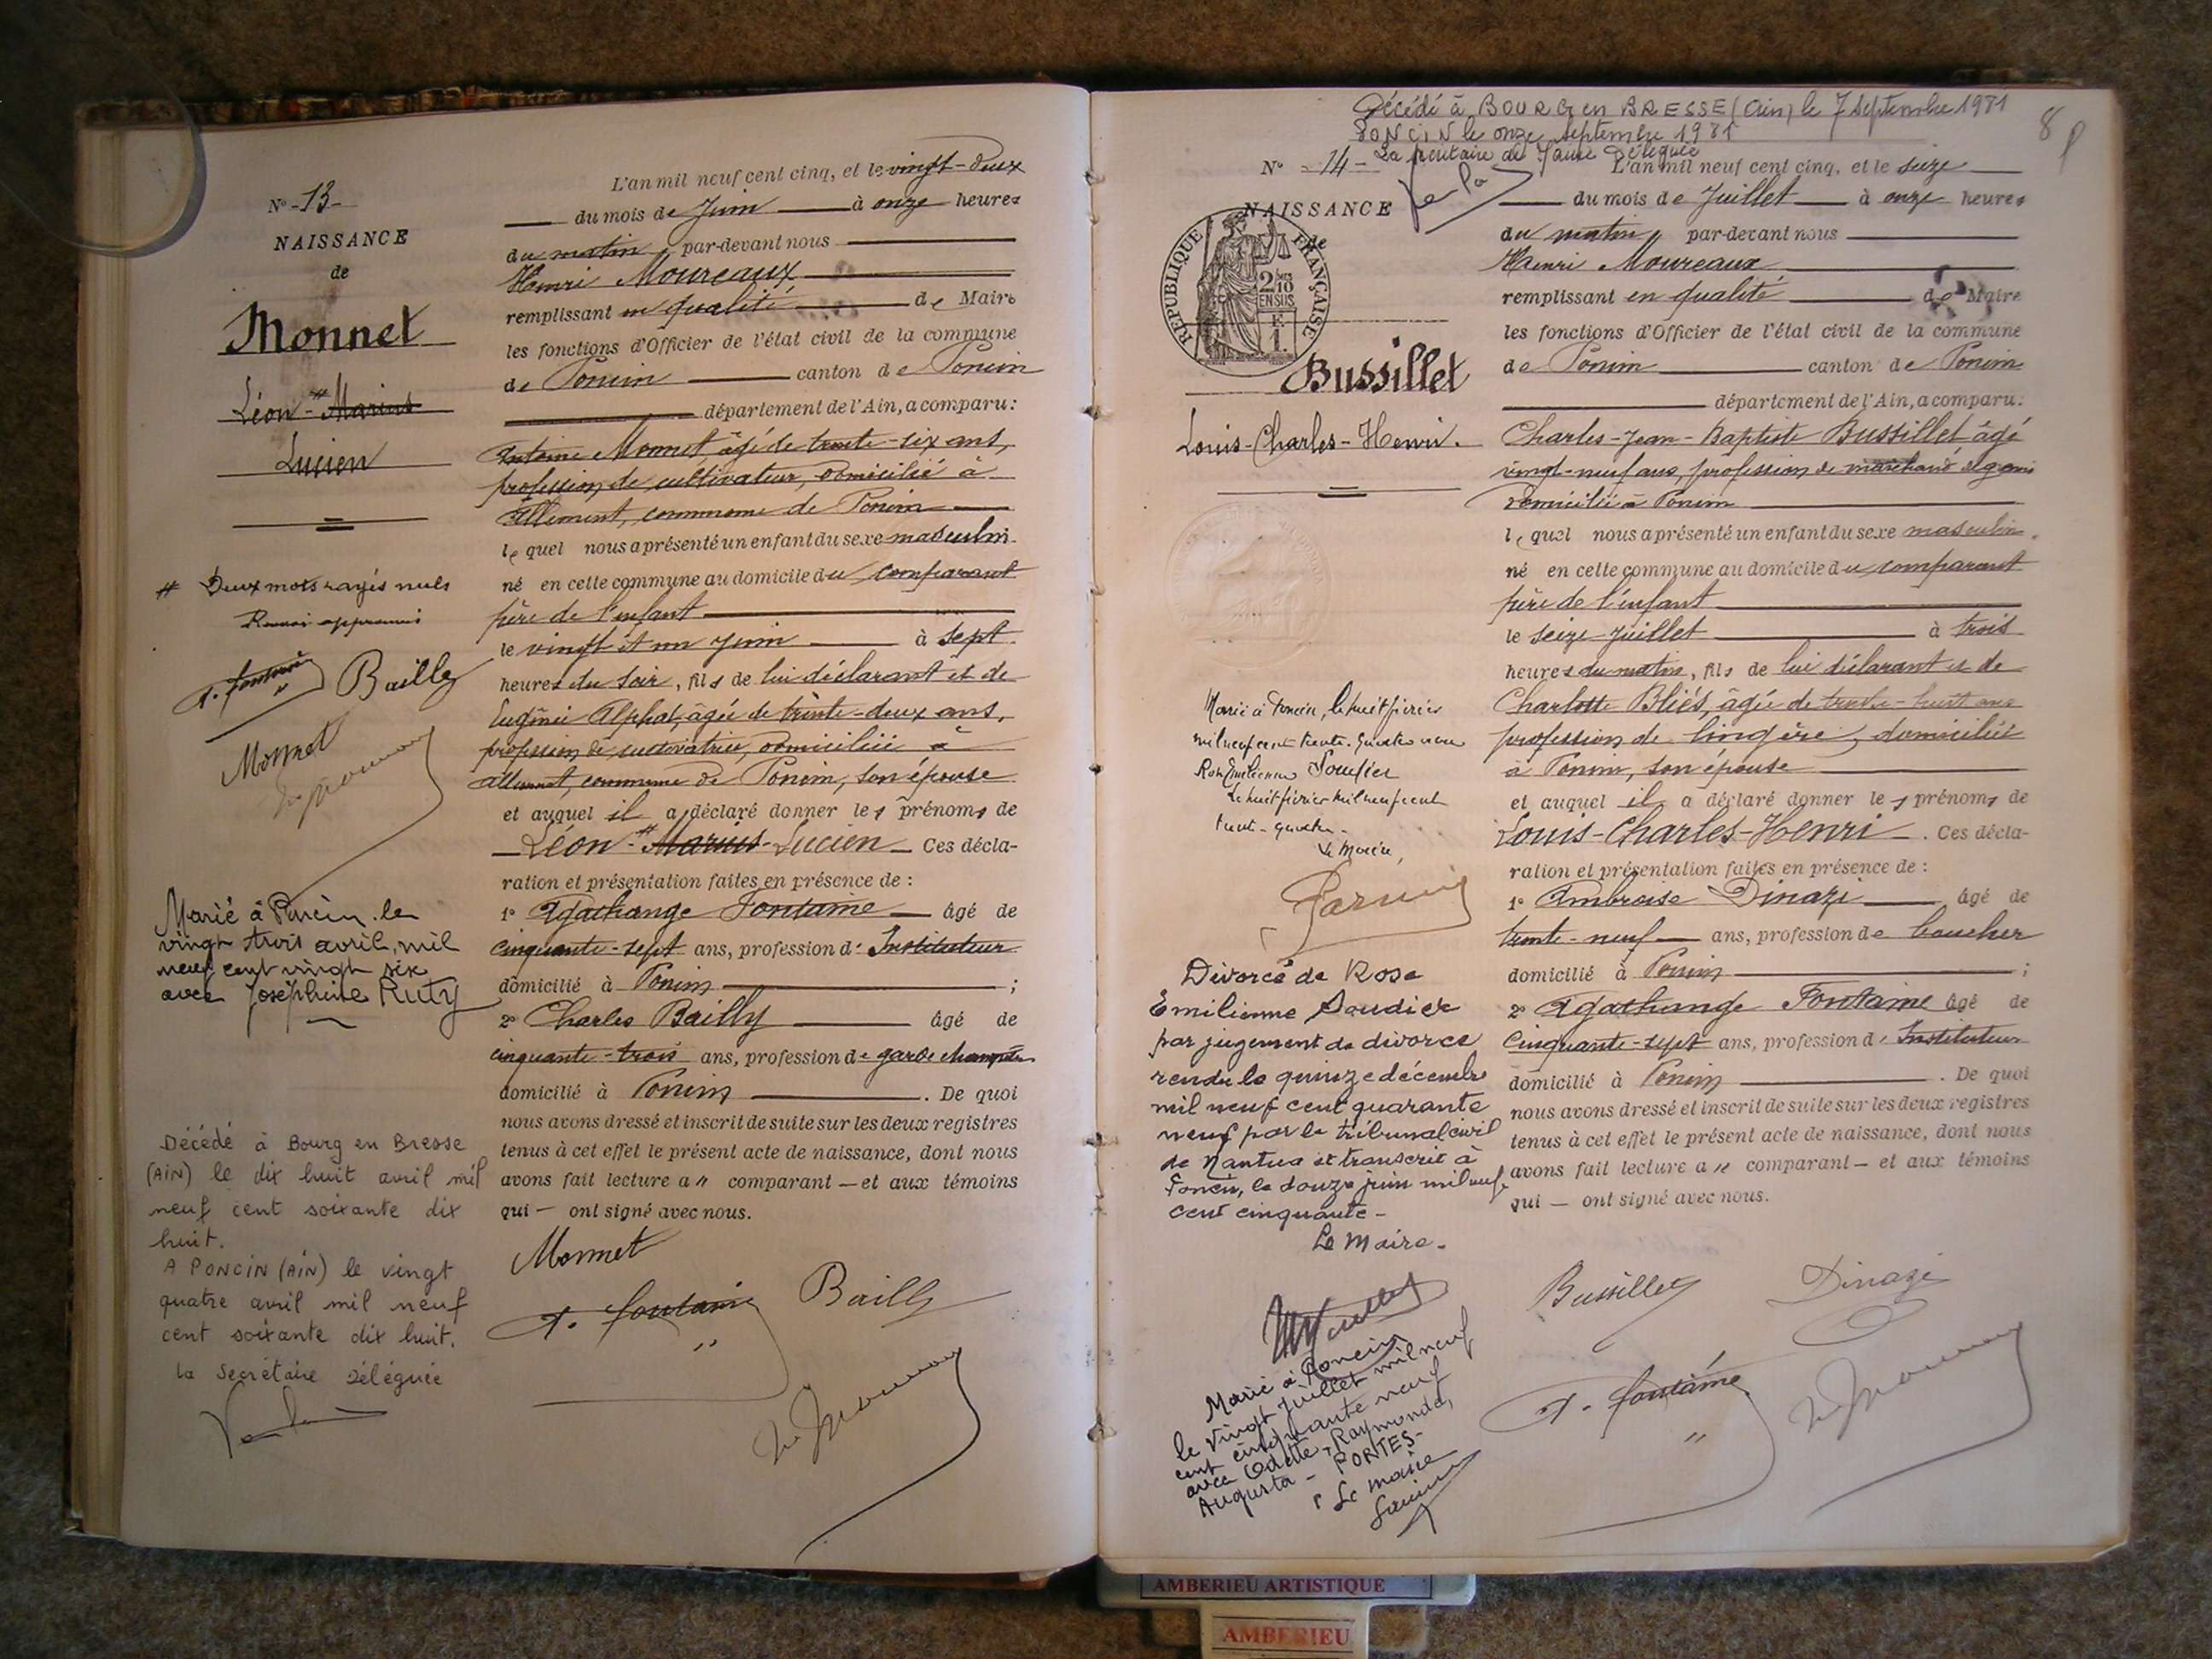 N° -13-
NAISSANCE
de
Monnet
Léon-#Marius-
Lucien
# Deux mots rayés nuls
Renvoi approuvé
A. Fontaine Bailly
Monnet
Marié à Poncin le
vingt trois avril, mil
neuf cent vingt six
avec Joséphine Ruty
Décédé à Bourg en Bresse
(AIN) le dix huit avril mil
neuf cent soixante dix
huit.
A PONCIN (AIN) le vingt
quatre avril mil neuf
cent soixante dix huit.
La Secrétaire Déléguée
L'an mil neuf cent cinq, et le vingt-deux
du mois de Juin à onze heures
du matin, par-devant nous
Henri Moureaux
remplissant en qualité de Maire
les fonctions d'Officier de l'état civil de la commune
de Poncin canton de Poncin
département de l'Ain, a comparu:
Antoine Monnet, âgé de trente-six ans,
profession de cultivateur, domicilié à
Allement, commune de Poncin
lequel nous a présenté un enfant du sexe masculin
né en cette commune au domicile du comparant
père de l'enfant
le vingt et un juin à sept
heures du soir, fils de lui déclarant et de
Eugénie Alphat, âgée de trente-deux ans,
profession de cultivatrice, domiciliée à
Allement, commune de Poncin, son épouse
et auquel il a déclaré donner les prénoms de
Léon-#Marius-Lucien Ces décla-
ration et présentation faites en présence de :
1° Agathange Fontaine âgé de
cinquante-sept ans, profession d'Instituteur
domicilié à Poncin ;
2° Charles Bailly âgé de
cinquante-trois ans, profession de garde champêtre
domicilié à Poncin . De quoi
nous avons dressé et inscrit de suite sur les deux registres
tenus à cet effet le présent acte de naissance, dont nous
avons fait lecture a" comparant — et aux témoins
qui — ont signé avec nous.
Monnet
A. Fontaine Bailly
Décédé à BOURG en BRESSE (Ain) le 7 septembre 1981
PONCIN le onze septembre 1981
La secrétaire de Mairie Déléguée
8
N° -14-
NAISSANCE
de
REPUBLIQUE FRANÇAISE
2/10
EN SUS
Bussillet
Louis-Charles-Henri.
Marié à Poncin, le huit février
mil neuf cent trente-quatre avec
Rose Emilienne Soudier
Le huit février mil neuf cent
trente-quatre.
Le Maire,
Divorcé de Rose
Emilienne Soudier
par jugement de divorce
rendu le quinze décembre
mil neuf cent quarante
neuf par le tribunal civil
de Nantua et transcrit à
Poncin, le douze juin mil neuf
cent cinquante-
Le Maire.
Marié à Poncin
le vingt juillet mil neuf
cent cinquante neuf
avec Odette, Raymonde,
Augusta - PORTES-
Le maire
L'an mil neuf cent cinq, et le seize
du mois de Juillet à onze heures
du matin, par-devant nous
Henri Moureaux
remplissant en qualité de Maire
les fonctions d'Officier de l'état civil de la commune
de Poncin canton de Poncin
département de l'Ain, a comparu:
Charles-Jean-Baptiste Bussillet âgé
vingt-neuf ans, profession de marchand
domicilié à Poncin
lequel nous a présenté un enfant du sexe masculin.
né en cette commune au domicile du comparant
père de l'enfant
le seize Juillet à trois
heures du matin, fils de lui déclarant et de
Charlotte Bliés, âgée de trente-huit ans
profession de lingère, domiciliée
à Poncin, son épouse
et auquel il a déclaré donner les prénoms de
Louis-Charles-Henri . Ces décla-
ration et présentation faites en présence de :
1° Ambroise Dinazi âgé de
trente-neuf ans, profession de boucher
domicilié à Poncin ;
2° Agathange Fontaine âgé de
Cinquante-sept ans, profession d'Instituteur
domicilié à Poncin . De quoi
nous avons dressé et inscrit de suite sur les deux registres
tenus à cet effet le présent acte de naissance, dont nous
avons fait lecture a" comparant — et aux témoins
qui — ont signé avec nous.
Bussillet Dinazi
A. Fontaine
AMBERIEU ARTISTIQUE
AMBERIEU